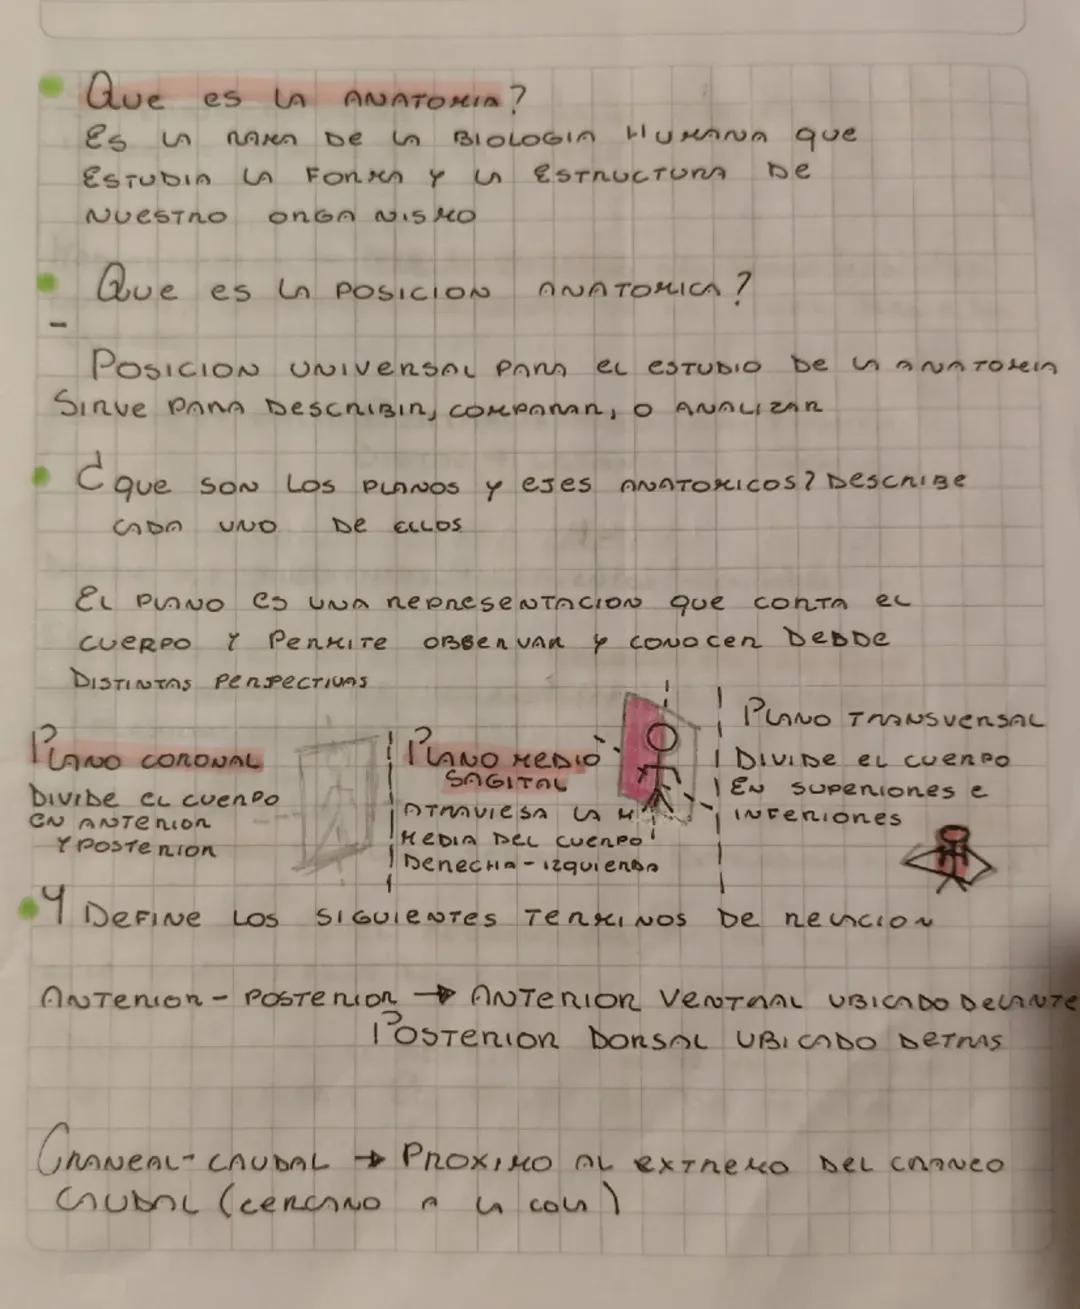 Que es la ANATOMIA?
Es la RAMA DE la BIOLOGIA HUMANA que
ESTUDIA la FORMA y la ESTRUCTURA DE
NUESTRO ORGANISMO
Que es la POSICION ANATOMICA?
-
POSICION UNIVERSAL PARA EL ESTUDIO DE la ANATOMIA
SIRVE PARA DESCRIBIR, COMPARAR, O ANALIZAR
¿que SON LOS PLANOS y EJES ANATOMICOS? DESCRIBE
CADA UNO DE ELLOS
EL PLANO ES UNA REPRESENTACION que CORTA EL
CUERPO Y PERMITE OBSERVAR y CONOCER DEBDE
DISTINTAS PERSPECTIVAS
PLANO CORONAL
DIVIDE EL CUERPO
EN ANTERIOR
Y POSTERIOR
PLANO MEDIO
SAGITAL
ATRAVIESA LA M
MEDIA DEL CUERPO
DERECHA - IZQUIERDA
PLANO TRANSVERSAL
DIVIDE EL CUERPO
EN SUPERIORES E
INFERIORES
4 DEFINE LOS SIGUIENTES TERMINOS DE RELACION
ANTERIOR - POSTERIOR → ANTERIOR VENTRAL UBICADO DELANTE
POSTERIOR DORSAL UBICADO DETRAS
CRANEAL - CAUDAL → PROXIMO AL EXTREMO DEL CRANEO
CAUDAL (CERCANO A LA COLA)